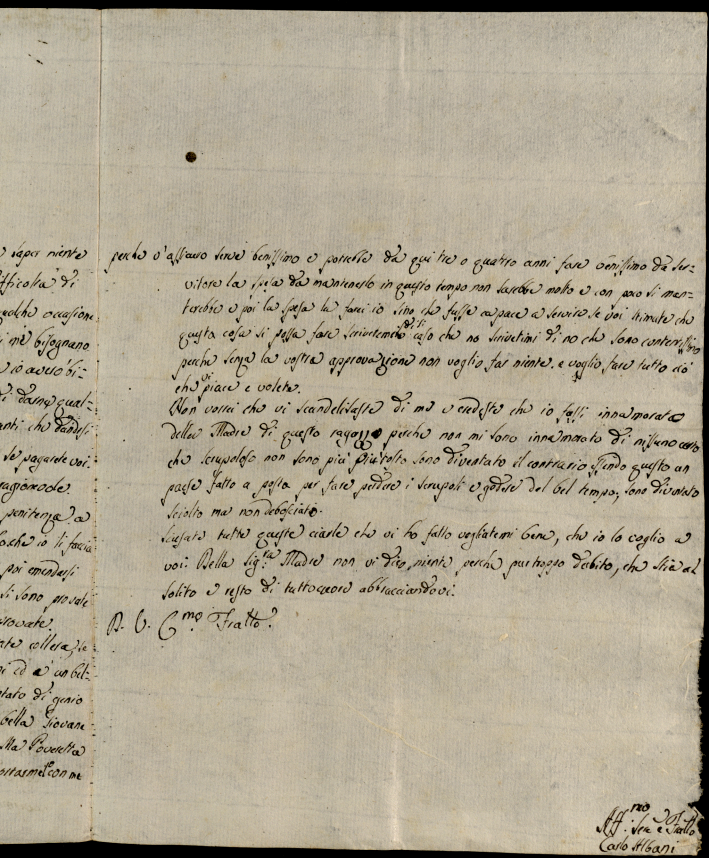 saper niente
fficoltà di
qualche occasione
i me bisognano
io averò bi-
di darne qual-
anti che
se pagarete voi.
ragionevole
penitenza a
che io li faccia
poi emendarsi
si sono provate
provate.
ate collera, se
ni ed a un bel-
tato di genio
bella Giovane
lla Poveretta
con me
perche v'assicuro serve benissimo e potrebbe da qui tre o quattro anni fare benissimo da Ser-
vitore la spesa da mantenerlo in questo tempo non sarebbe molto e con poco si man-
terebbe e poi la spesa la farei io sino che fusse capace a servire se voi stimate che
questa cosa si possa fare scrivetemi di si caso che no scrivetimi di no che sono contentissimo
perche senza la vostra approvazione non voglio far niente, e voglio fare tutto ciò
che vi piace e volete.
Non vorrei che vi scandelisaste di me e credeste che io fossi innamorato
della Madre di questo ragazzo perche non mi sono innamorato di nissuna certo
che scrupoloso non sono più più tosto sono diventato il contrario essendo questo un
paese fatto a posta per fare perdere i scrupoli e godere del bel tempo; sono diventato
sciolto ma non debosciato.
Scusate tutte queste ciarle che vi ho fatto vogliatemi bene, che io lo voglio a
voi. Della Sig.ra Madre non vi dico niente perche purtroppo dubito, che stia al
solito e resto di tutto cuore abbracciandovi.
D. V. C.mo Fratto.
Aff.mo Ser. e Fratto
Carlo Albani